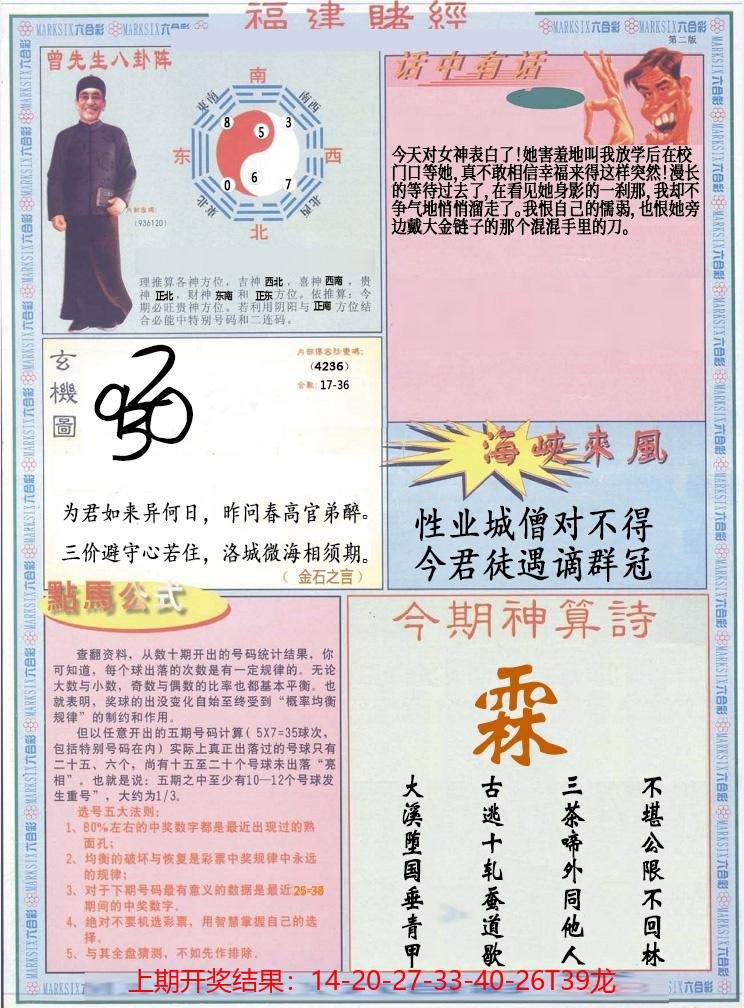 福建賭經
MARKSIX六合彩 MARKSIX六合彩
MARKSIX六合彩 MARKSIX六合彩
第二版
曾先生八卦阵
南
东南
南西
东
西
东北
北西
北
8
5
3
0
6
7
(936120)
理推算各神方位，吉神西北，喜神西南，贵
神正北，财神东南和正东方位。依推算：今
期必旺贵神方位。若利用阴阳与正南方位结
合必能中特别号码和二连码。
话中有话
今天对女神表白了！她害羞地叫我放学后在校
门口等她，真不敢相信幸福来得这样突然！漫长
的等待过去了，在看见她身影的一刹那，我却不
争气地悄悄溜走了。我恨自己的懦弱，也恨她旁
边戴大金链子的那个混混手里的刀。
玄機圖
(4236)
合数：17-36
为君如来异何日，昨问春高官弟醉。
三价避守心若住，洛城微海相须期。
（金石之言）
海峽來風
性业城僧对不得
今君徒遇谪群冠
點馬公式
查翻资料，从数十期开出的号码统计结果，你
可知道，每个球出落的次数是有一定规律的。无论
大数与小数，奇数与偶数的比率也都基本平衡。也
就表明，奖球的出没变化自始至终受到“概率均衡
规律”的制约和作用。
但以任意开出的五期号码计算（5X7=35球次，
包括特别号码在内）实际上真正出落过的号球只有
二十五、六个，尚有十五至二十个号球未出落“亮
相”。也就是说：五期之中至少有10—12个号球发
生重号”，大约为1/3。
选号五大法则：
1、80%左右的中奖数字都是最近出现过的熟
面孔；
2、均衡的破坏与恢复是彩票中奖规律中永远
的规律；
3、对于下期号码最有意义的数据是最近25=38
期间的中奖数字。
4、绝对不要机选彩票，用智慧掌握自己的选
择。
5、与其全盘猜测，不如先作排除．
今期神算詩
霖
不堪公限不回林
三茶啼外同他人
古逃十轧蚕道歌
大溪堕国垂青甲
上期开奖结果：14-20-27-33-40-26T39龙